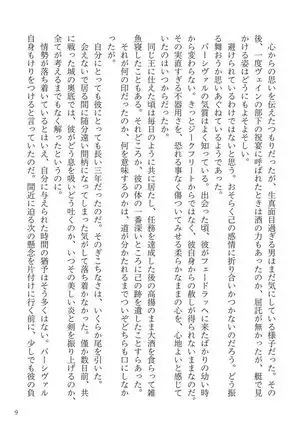 心からの思いを伝えたつもりだったが、生真面目過ぎる男はまだ気にしている様子だった。その
後、一度ヴェインの部下の祝宴に呼ばれたときは酒の力もあったのか、屈託が無かったが、概で見
かける姿はどうにもよそよそしい。
避けられているわけではないと思う。おそらくこの感情に折り合いがつかないのだろう。どう振
る舞おうか思いあぐねているようであった。
パーシヴァルの気質はよく知っている。出会った頃、彼がフェードラッヘに来たばかりの幼い時
から変わらない。きっとジークフリートからではなく、彼自身からの赦しが得られないままなのだ。
その実直すぎる不器用さを、恐れる事なく傷ついてみせる柔らかなままの心を、心地よいと感じて
いたのはいつからだったか。
同じ王に仕えた頃は毎日のように共に居たし、任務を達成した後の高揚のまま大酒を食らって雑
魚寝したこともある。それどころか、彼の体の一番深いところに己の跡を遺したことすらあった。
それが何の印だったのか、何を意味するのかは、道が分かたれるまでついぞどちらも口にしなか
ったが。
自分にとっても彼にとっても長い三年だったのだ。そのぎこちなさは、いくらか尾を引いた。
会えないで居る間に随分遠い間柄になってしまった気がして落ち着かなかった。僅か数日前、共
にした城の奥底では、彼がどう息を吸いどう吐くのか、いつその美しい炎と剣を振り上げるのか、
全て考えるまでもなく解ったというのに。
情勢が落ち着いているとはいえ、自分たちの時間の猶予はそう多くはない。パーシヴァル
自身もけりをつけると言っていたのだ。間近に迫る次の懸念を片付けに行く前に、少しでも彼の負
9